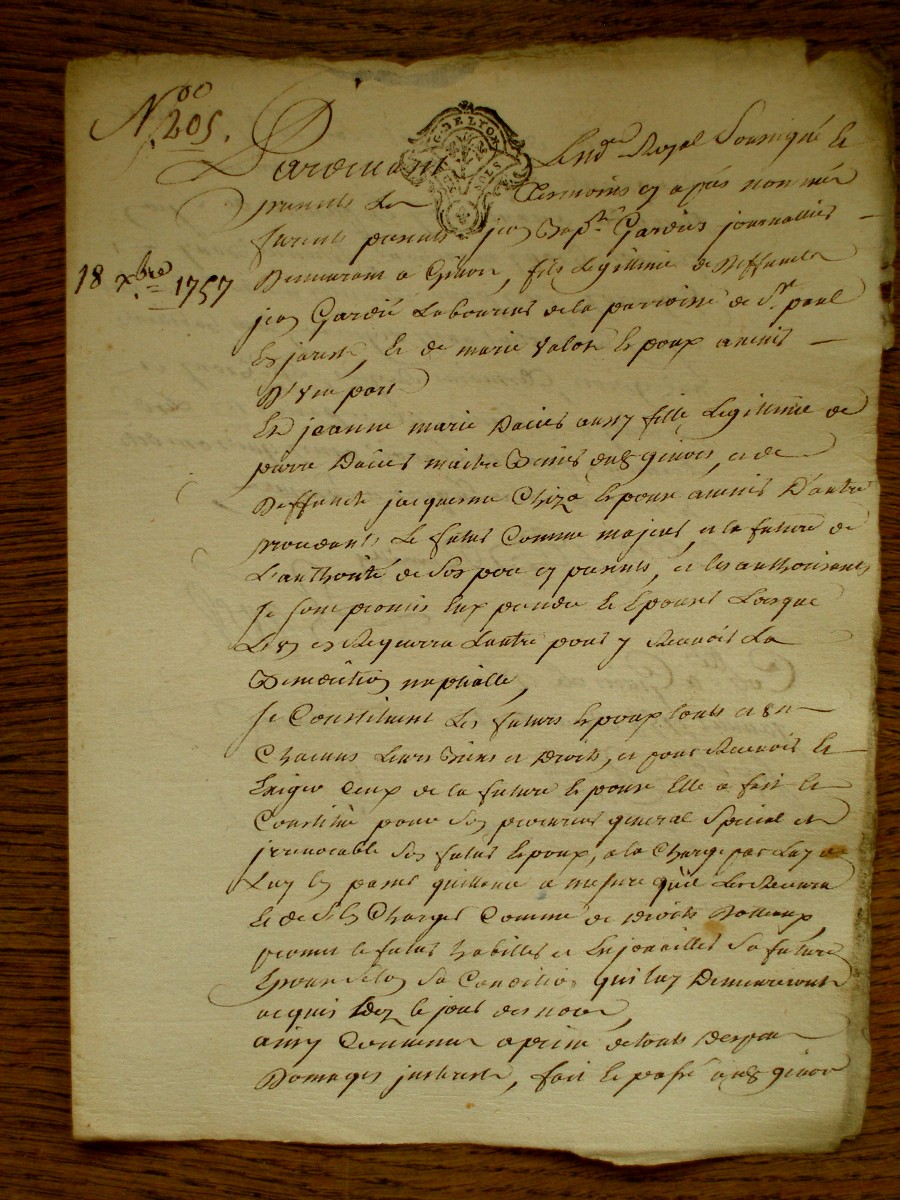 N.oo 205.
G. DE LYON
SOLS
Pardevant Le nore Royal Soussigné et
presents Les Temoins cy apres nommés
furent presents jean Bapte Gardies journallier
18 xbre 1757
Demeurant a Givors, fils Legitime de Deffunct
jean Gardié Laboureur de la parroisse de St paul
En jarest, et de marie valon Epoux avenir
D'une part
Et jeanne marie aussy fille Legitime de
pierre maitre audt givors, et de
Deffuncte jacquesme Epouse avenir D'autre
procedants Le futur Comme majeur, et la future de
L'authorité de Son pere cy present, et les authorisant
Se sont promis Eux prendre et Epouser Lorsque
L'un en Requerra L'autre pour y Recevoir La
Benediction nuptialle,
Se Constituent Les futurs Epoux touts et un
Chacuns Leurs Biens et Droits, et pour Recevoir et
Exiger Ceux de la future Epouse Elle a fait et
Constitué pour Son procureur general Special et
jrrevocable Son futur Epoux, a la Charge par Luy de
Luy En passer quittance a mesure qu'il Les Recevra
Et de S'En Charger Comme de Droits Dottaux,
promet le futur habiller et Enjoailler Sa future
Epouse Selon Sa Condition qui luy Demeureront
acquis Dez le jour des noces,
ainsy Convenu a peine de touts Depens
Domages jnterests, fait et passé audt givors